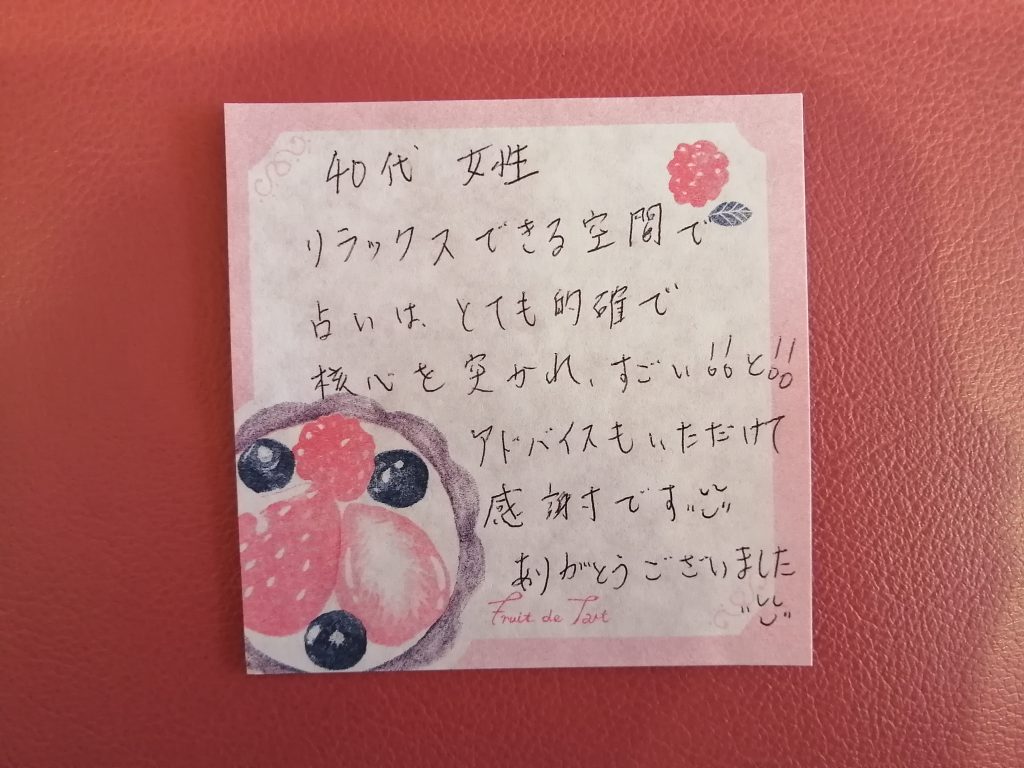 40代 女性
リラックスできる空間で
占いは、とても的確で
核心を突かれ、すごい!!と!!
アドバイスもいただけて
感謝です
ありがとうございました
Fruit de Tart